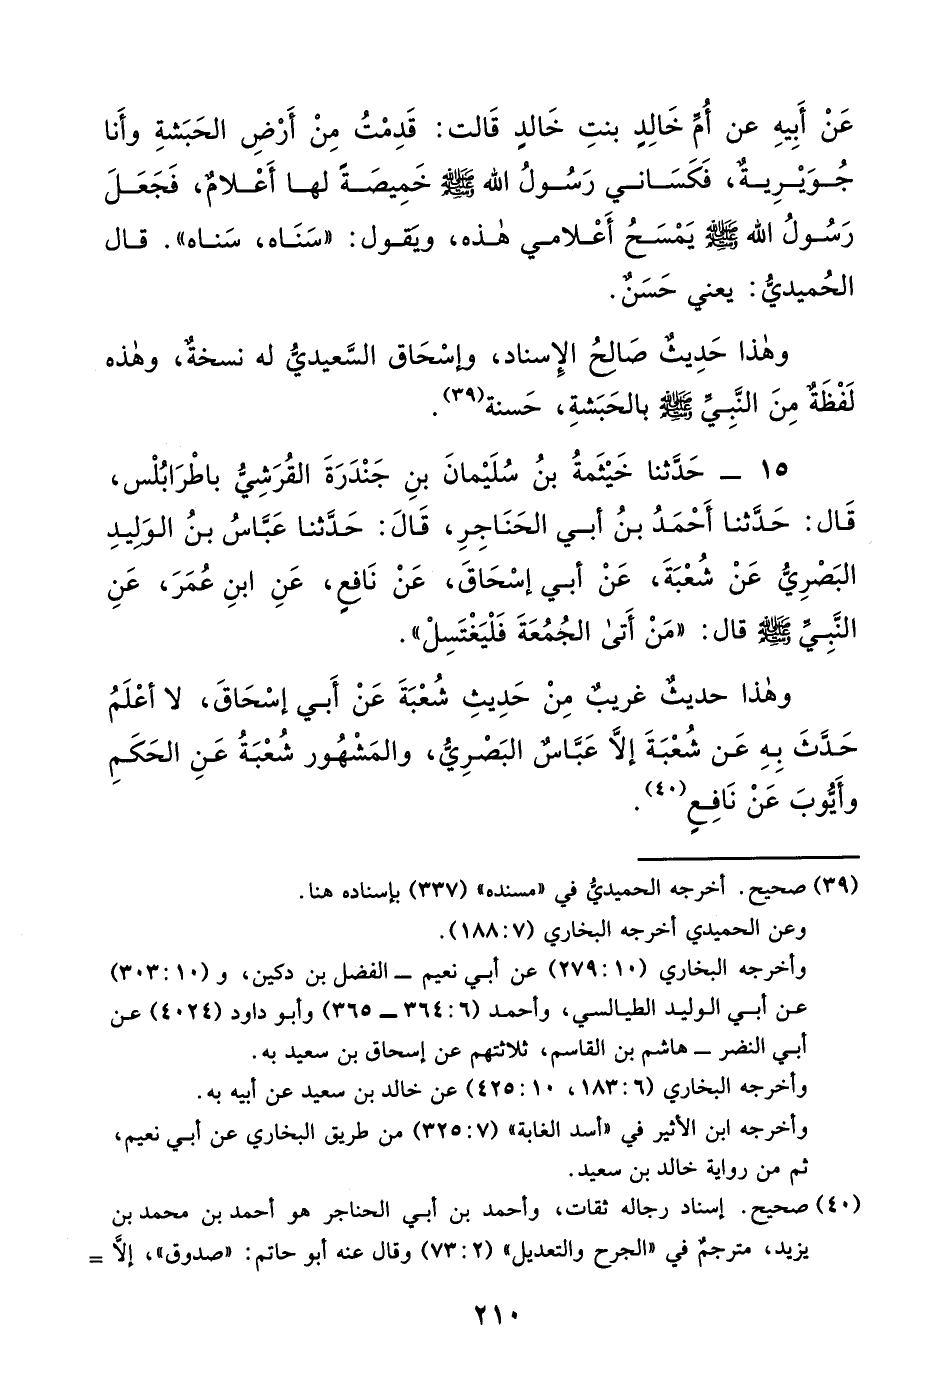 عَنْ أَبِيهِ عن أُمِّ خَالِدٍ بنتِ خَالدٍ قَالت: قَدِمْتُ مِنْ أَرْضِ الحَبَشةِ وأَنا
جُوَيْرِيةٌ، فَكَسَاني رَسُولُ الله ﷺ خَمِيصَةً لها أَعْلامٌ، فَجَعَلَ
رَسُولُ الله ﷺ يَمْسَحُ أَعْلامي هٰذه، ويَقول: «سَنَاه، سَناه». قال
الحُميديُّ: يعني حَسَنٌ.
وهٰذا حَدِيثٌ صَالِحُ الإِسناد، وإسْحَاق السَّعيديُّ له نسخةٌ، وهٰذه
لَفْظَةٌ مِنَ النَّبِيِّ ﷺ بالحَبَشةِ، حَسنة(٣٩).
١٥ ــ حَدَّثنا خَيْثَمةُ بنُ سُلَيْمانَ بنِ جَنْدَرَةَ القُرَشِيُّ باطْرَابُلْس،
قَال: حَدَّثنا أَحْمَدُ بنُ أبي الحَنَاجِرِ، قَالَ: حَدَّثنا عَبَّاسُ بنُ الوَلِيدِ
البَصْرِيُّ عَنْ شُعْبَةَ، عَنْ أبي إسْحَاقَ، عَنْ نَافعٍ، عَنِ ابنِ عُمَرَ، عَنِ
النَّبِيِّ ﷺ قال: «مَنْ أَتىٰ الجُمُعَةَ فَلْيَغْتَسِلْ».
وهٰذا حديثٌ غريبٌ مِنْ حَدِيثِ شُعْبَةَ عَنْ أَبي إسْحَاقَ، لا أعْلَمُ
حَدَّثَ بِهِ عَن شُعْبَةَ إلاَّ عَبَّاسٌ البَصْرِيُّ، والمَشْهُور شُعْبَةُ عَنِ الحَكَمِ
وأَيُّوبَ عَنْ نَافِعٍ(٤٠).
(٣٩) صحيح. أخرجه الحميديُّ في «مسنده» (٣٣٧) بإسناده هنا.
وعن الحميدي أخرجه البخاري (١٨٨:٧).
وأخرجه البخاري (٢٧٩:١٠) عن أبي نعيم ــ الفضل بن دكين، و (٣٠٣:١٠)
عن أبي الوليد الطيالسي، وأحمد (٣٦٤:٦ ــ ٣٦٥) وأبو داود (٤٠٢٤) عن
أبي النضر ــ هاشم بن القاسم، ثلاثتهم عن إسحاق بن سعيد به.
وأخرجه البخاري (١٨٣:٦، ٤٢٥:١٠) عن خالد بن سعيد عن أبيه به.
وأخرجه ابن الأثير في «أسد الغابة» (٣٢٥:٧) من طريق البخاري عن أبي نعيم،
ثم من رواية خالد بن سعيد.
(٤٠) صحيح. إسناد رجاله ثقات، وأحمد بن أبي الحناجر هو أحمد بن محمد بن
يزيد، مترجمٌ في «الجرح والتعديل» (٧٣:٢) وقال عنه أبو حاتم: «صدوق»، إلاَّ =
٢١٠